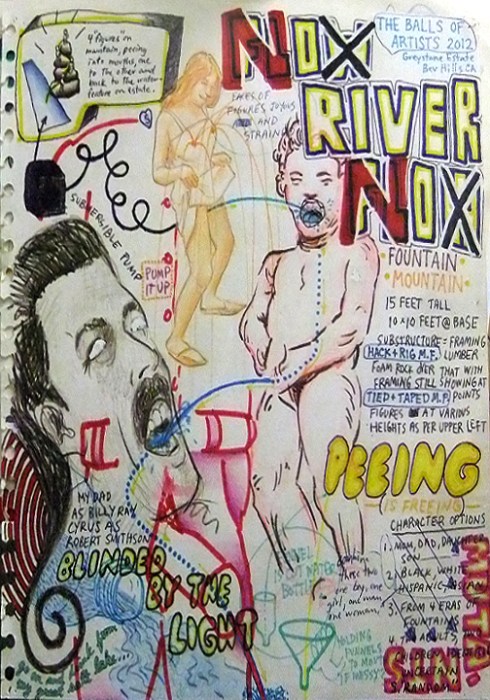 4 "figures" on
mountain, peeing
into mouths, one
to the other and
back to the water
feature on estate.
NOX
RIVER
NOX
THE BALLS OF
ARTISTS 2012
Greystone Estate
Bev Hills CA
FACES OF
FIGURES JOYOUS
AND
STRAIN
SUBMERSIBLE PUMP
PUMP
IT UP
FOUNTAIN
MOUNTAIN
15 FEET TALL
10 x 10 FEET @ BASE
SUBSTRUCTURE = FRAMING
HACK + RIG M.F. LUMBER
FOAM ROCK OVER THAT WITH
FRAMING STILL SHOWING AT
TIED + TAPED M.F. POINTS
FIGURES AT VARIOUS
HEIGHTS AS PER UPPER LEFT
PEEING
IS FREEING
CHARACTER OPTIONS
1. MOM, DAD, DAUGHTER
SON
2. BLACK, WHITE
HISPANIC, ASIAN
3. FROM 4 ERAS OF
FOUNTAINS
MY DAD
AS BILLY RAY
CYRUS AS
ROBERT SMITHSON
BLINDED
BY THE
LIGHT
these this
one boy, one
girl, one man
one woman,
HOLDING
FUNNELS
TO MOUTH
IF MASSY
great salt lake...
5 RANDOM